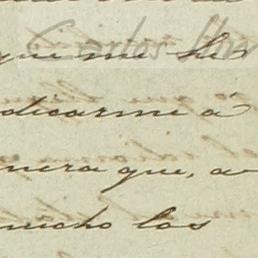 Carlos
que me he
dicarme á
nera que, a
mucho los